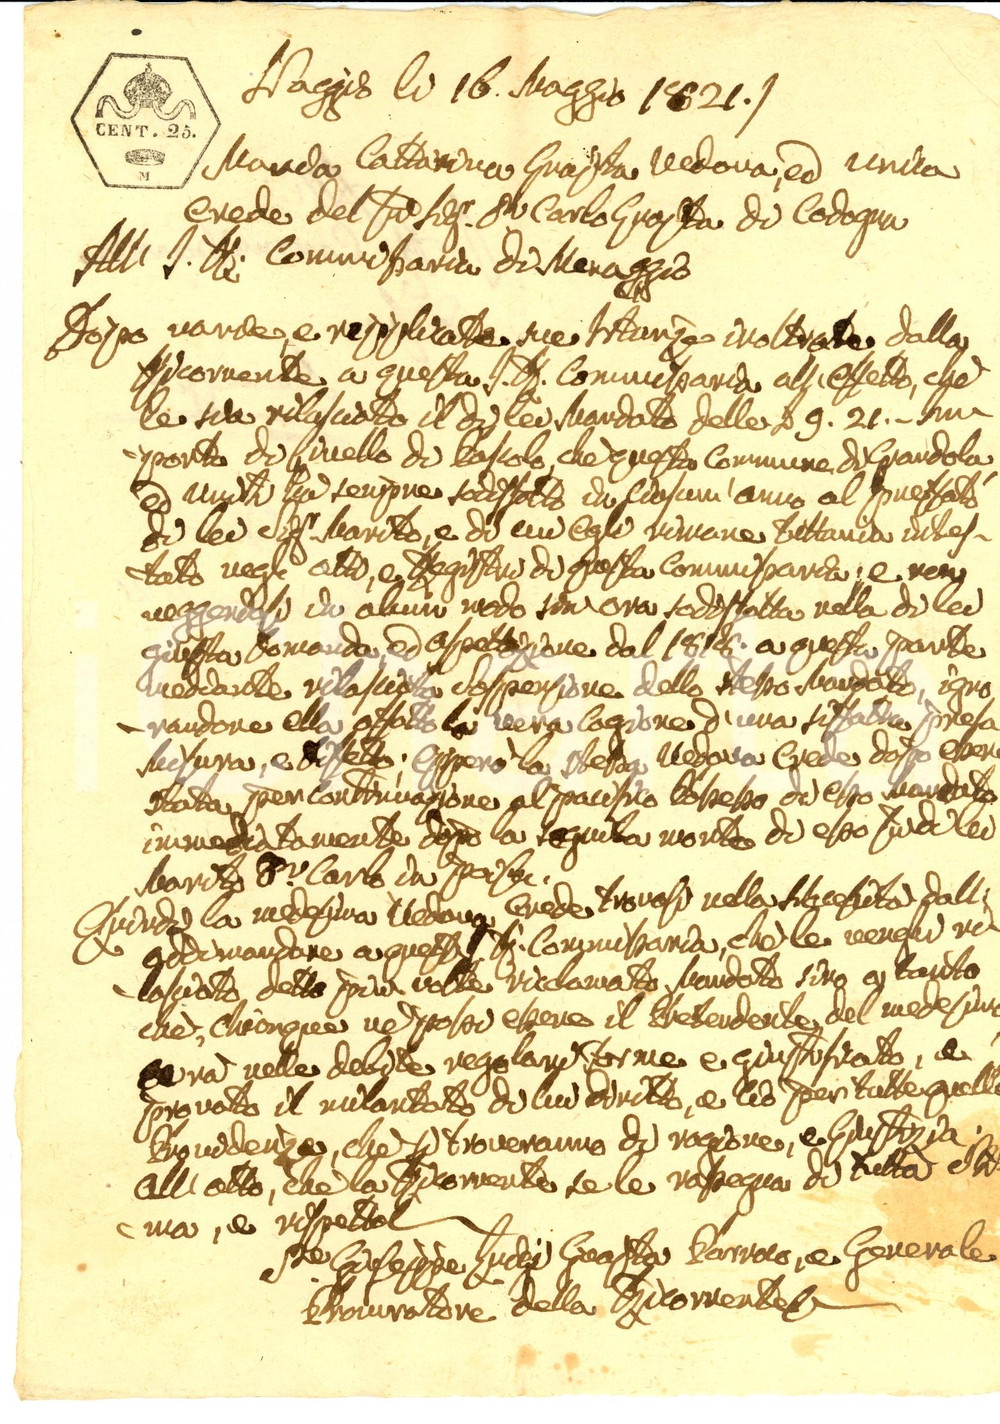 CENT. 25.
M
li 16. Maggio 1821.
Cattarina Vedova, ed unica
Erede del Carlo di Codogna
All' I. R. Commissaria di Menaggio
Dopo varie, e replicate sue Istanze inoltrate dalla
Ricorrente a questa I. R. Commissaria all' effetto, che
le sia rilasciato il di lei Mandato delle 9. 21. - im-
-porto di Livello di Pascolo, che questa Commune di Grandola,
ed Uniti ha sempre sodisfatto in ciascun' anno al prefato
di lei Sigr. Marito, e di cui Egli rimane tuttavia intes-
-tato negli atti, e Registri di questa Commissaria; e non
veggendosi in alcun modo sin' ora sodisfatta nella di lei
giusta Domanda, ed aspettazione dal 1818. a questa parte
mediante rilasciata sospensione dello stesso Mandato, igno-
-randone ella affatto la vera cagione d'una siffatta presa
Misura, e la stessa Vedova Erede dopo essere
stata per continuazione al pacifico Possesso di esso mandato
immediatamente dopo la seguita morte di esso fu di lei
Marito Carlo in
Quindi la medesima Vedova Erede trovasi nella Necessità dall'
addimandare a questa I. R. Commissaria, che le venghi ri-
-lasciato detto più volte reclamato Mandato sino a tanto
che, chiunque ne possi essere il Pretendente del medesimo
avrà nelle debite regolari forme e giustificato, e
provato il millantato di lui diritto, e ciò per tutte quelle
Providenze, che si troveranno di ragione, e Giustizia.
All' atto, che la Ricorrente se le rassegna di tutta Sti-
-ma, e rispetto
Pte Giuseppe Parroco, e Generale
Procuratore della Ricorrente